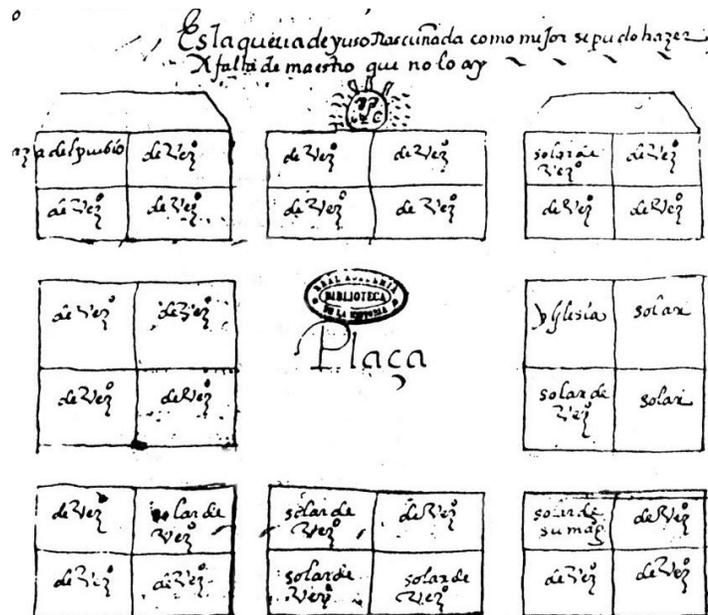 Es la que va de yuso rascuñada como mejor se pudo hazer
A falta de maestro que no lo ay
del pueblo de Vezº
de Vezº de Vezº
de Vezº de Vezº
de Vezº de Vezº
solar de Vezº de Vezº
de Vezº de Vezº
de Vezº de Vezº
de Vezº de Vezº
REAL ACADEMIA
BIBLIOTECA
DE LA HISTORIA
Plaça
yglesia solar
solar de Vezº solar
de Vez solar de Vezº
de Vezº de Vezº
solar de Vezº de Vezº
solar de Vezº solar de Vezº
solar de su mag de Vezº
de Vezº de Vezº